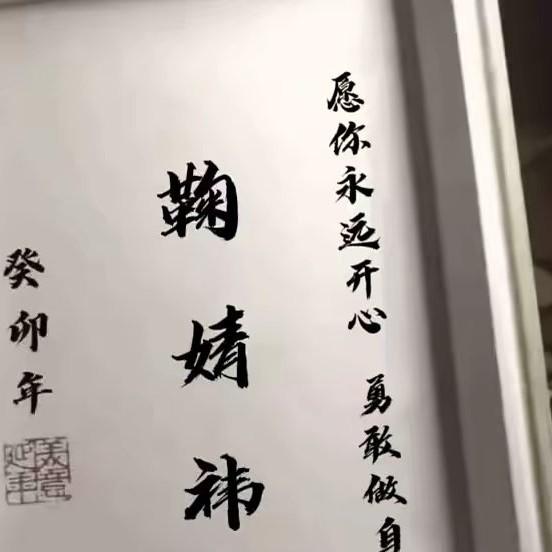 愿你永远开心 勇敢做自
鞠婧祎
癸卯年
美意延年